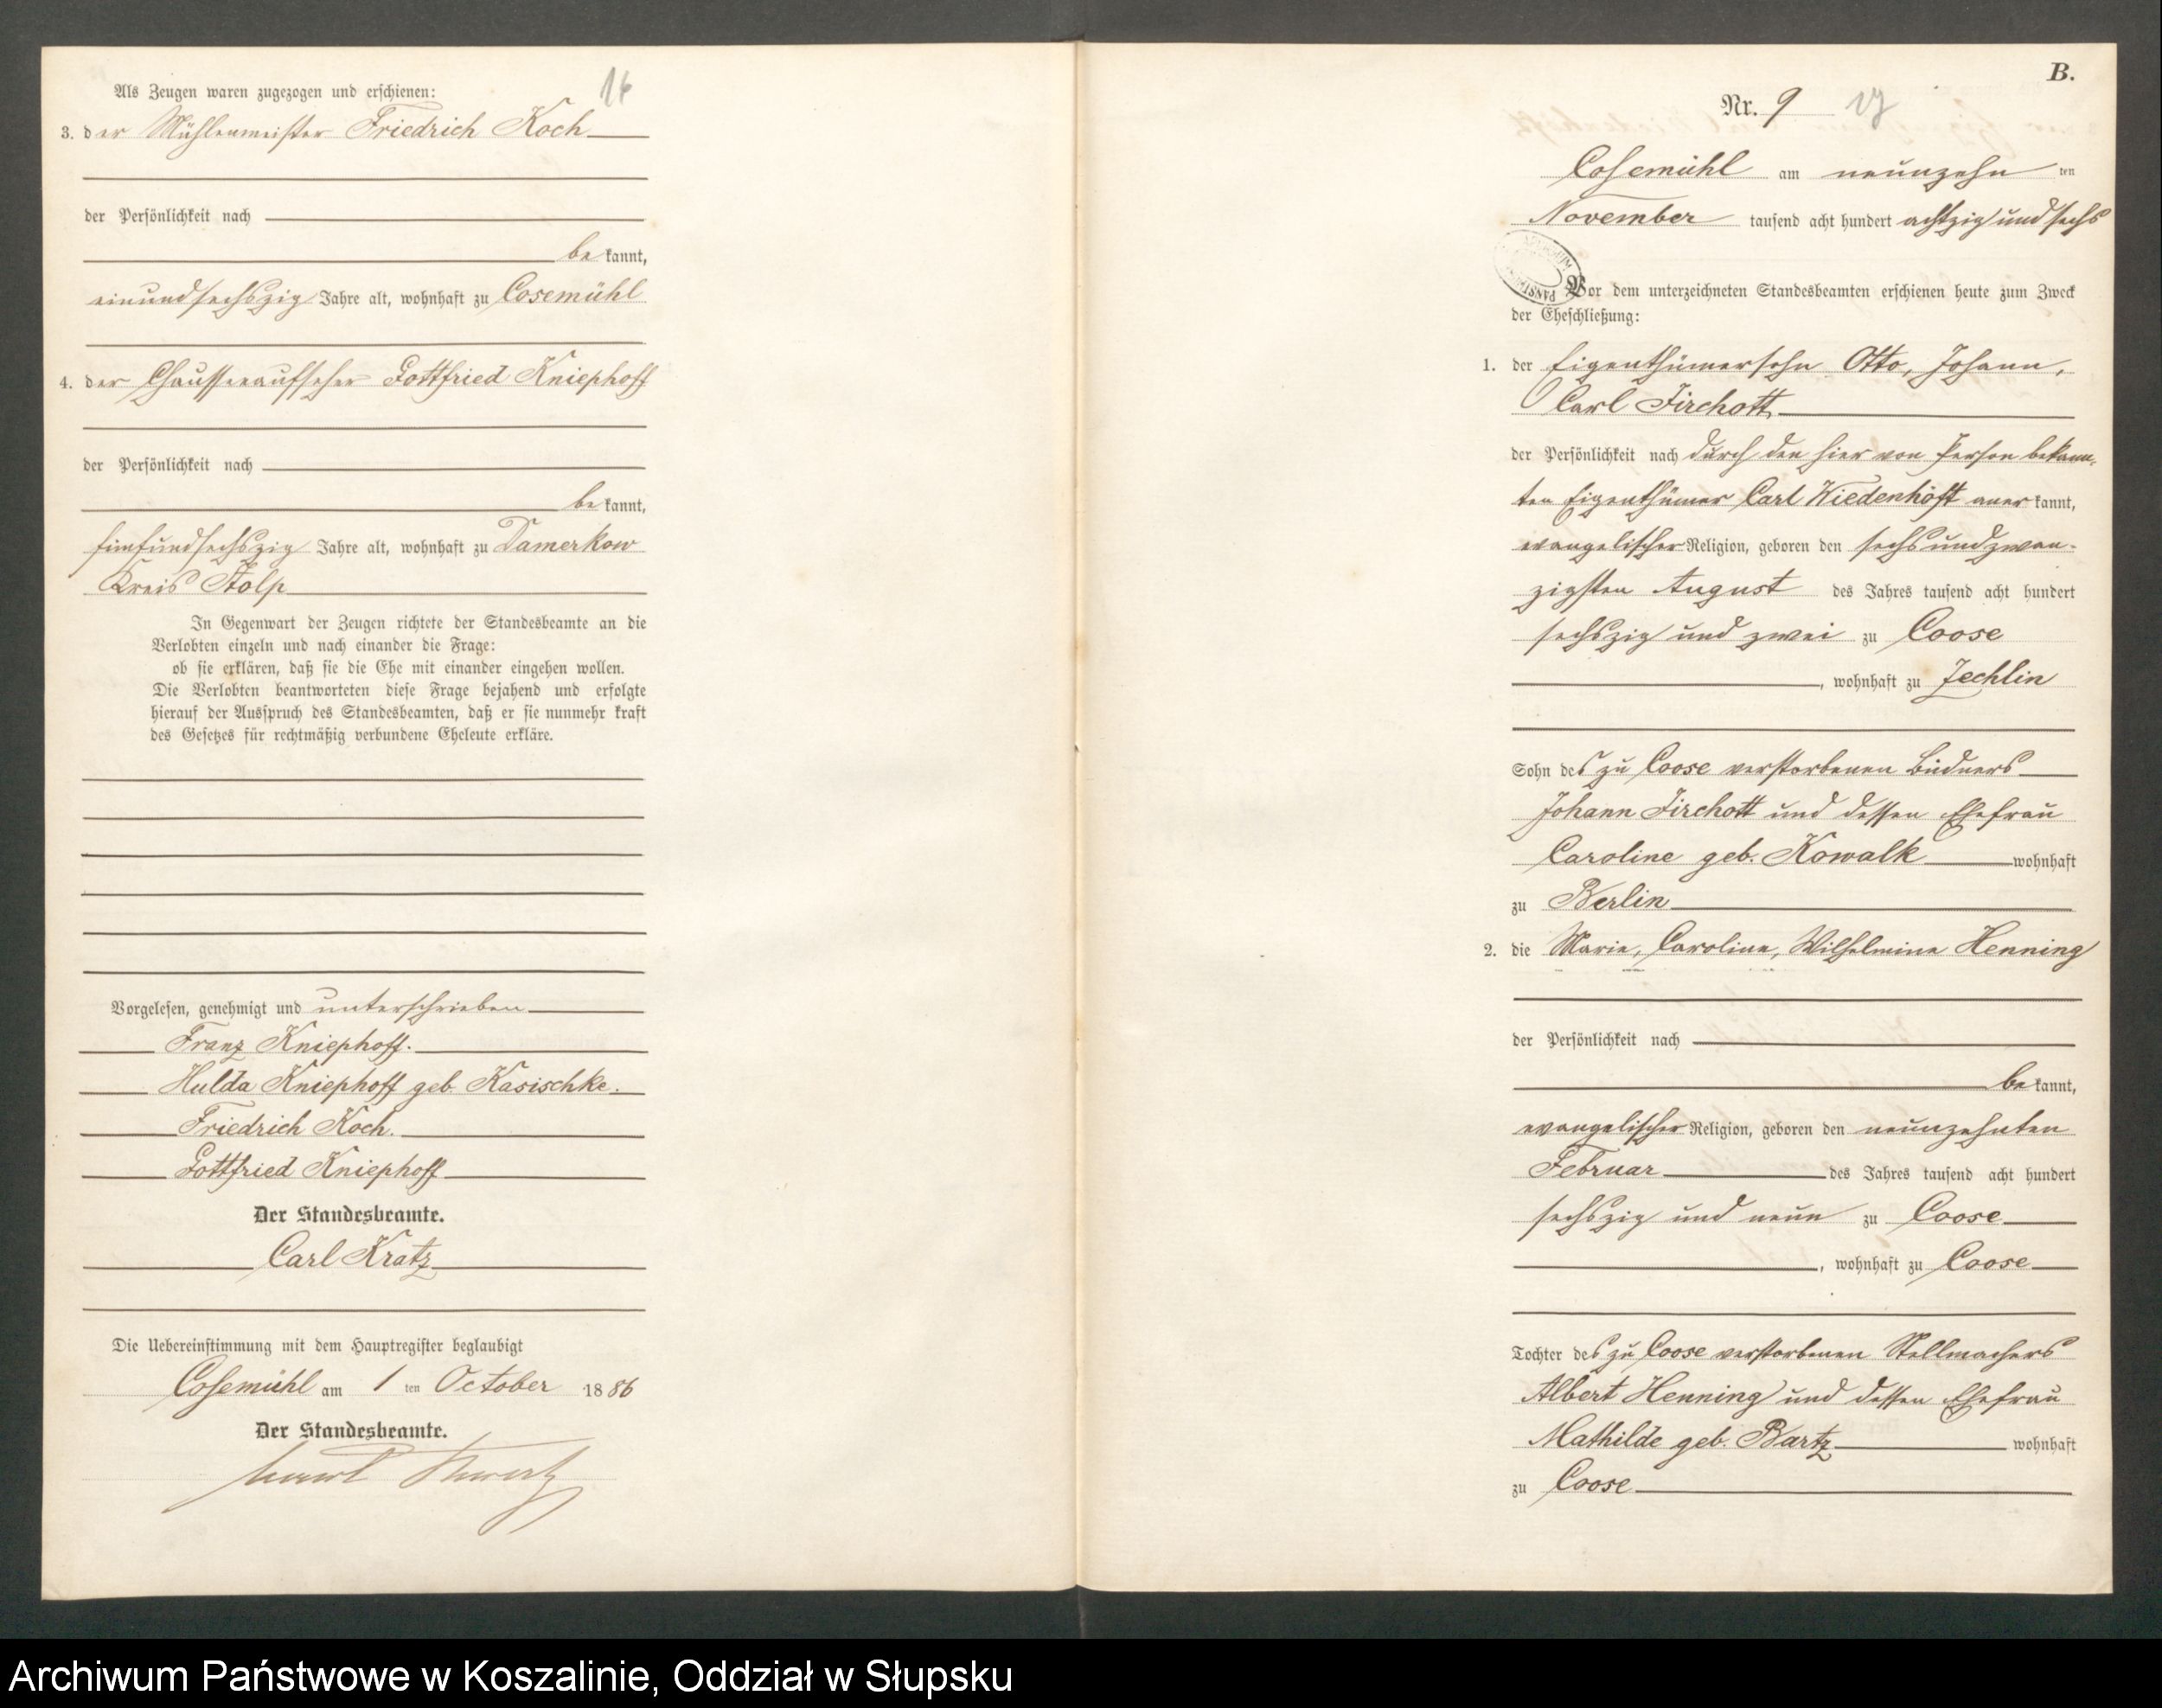 16
Als Zeugen waren zugezogen und erschienen:
3. der Mühlenmeister Friedrich Koch
der Persönlichkeit nach
bekannt,
einundsechszig Jahre alt, wohnhaft zu Cosemühl
4. der Chausseeaufseher Gottfried Kniephoff
der Persönlichkeit nach
bekannt,
fünfundsechszig Jahre alt, wohnhaft zu Damerkow
Kreis Stolp
In Gegenwart der Zeugen richtete der Standesbeamte an die
Verlobten einzeln und nach einander die Frage:
ob sie erklären, daß sie die Ehe mit einander eingehen wollen.
Die Verlobten beantworteten diese Frage bejahend und erfolgte
hierauf der Ausspruch des Standesbeamten, daß er sie nunmehr kraft
des Gesetzes für rechtmäßig verbundene Eheleute erkläre.
Vorgelesen, genehmigt und unterschrieben
Franz Kniephoff.
Hulda Kniephoff geb. Kasischke.
Friedrich Koch.
Gottfried Kniephoff
Der Standesbeamte.
Carl Kratz
Die Uebereinstimmung mit dem Hauptregister beglaubigt
Cosemühl am 1 ten October 1886
Der Standesbeamte.
B.
Nr. 9 17
Cosemühl am neunzehn ten
November tausend acht hundert achtzig und sechs
Vor dem unterzeichneten Standesbeamten erschienen heute zum Zweck
der Eheschließung:
1. der Eigenthümersohn Otto, Johann,
Carl Jirchott
der Persönlichkeit nach durch den hier von Person bekann-
ten Eigenthümer Carl Wiedenhöft anerkannt,
evangelischer Religion, geboren den sechsundzwan-
zigsten August des Jahres tausend acht hundert
sechszig und zwei zu Coose
, wohnhaft zu Jechlin
Sohn des zu Coose verstorbenen Büdners
Johann Jirchott und dessen Ehefrau
Caroline geb. Kowalk wohnhaft
zu Berlin
2. die Marie, Caroline, Wilhelmine Henning
der Persönlichkeit nach
bekannt,
evangelischer Religion, geboren den neunzehnten
Februar des Jahres tausend acht hundert
sechszig und neun zu Coose
, wohnhaft zu Coose
Tochter des zu Coose verstorbenen Stellmachers
Albert Henning und dessen Ehefrau
Mathilde geb. Bartz wohnhaft
zu Coose
Archiwum Państwowe w Koszalinie, Oddział w Słupsku